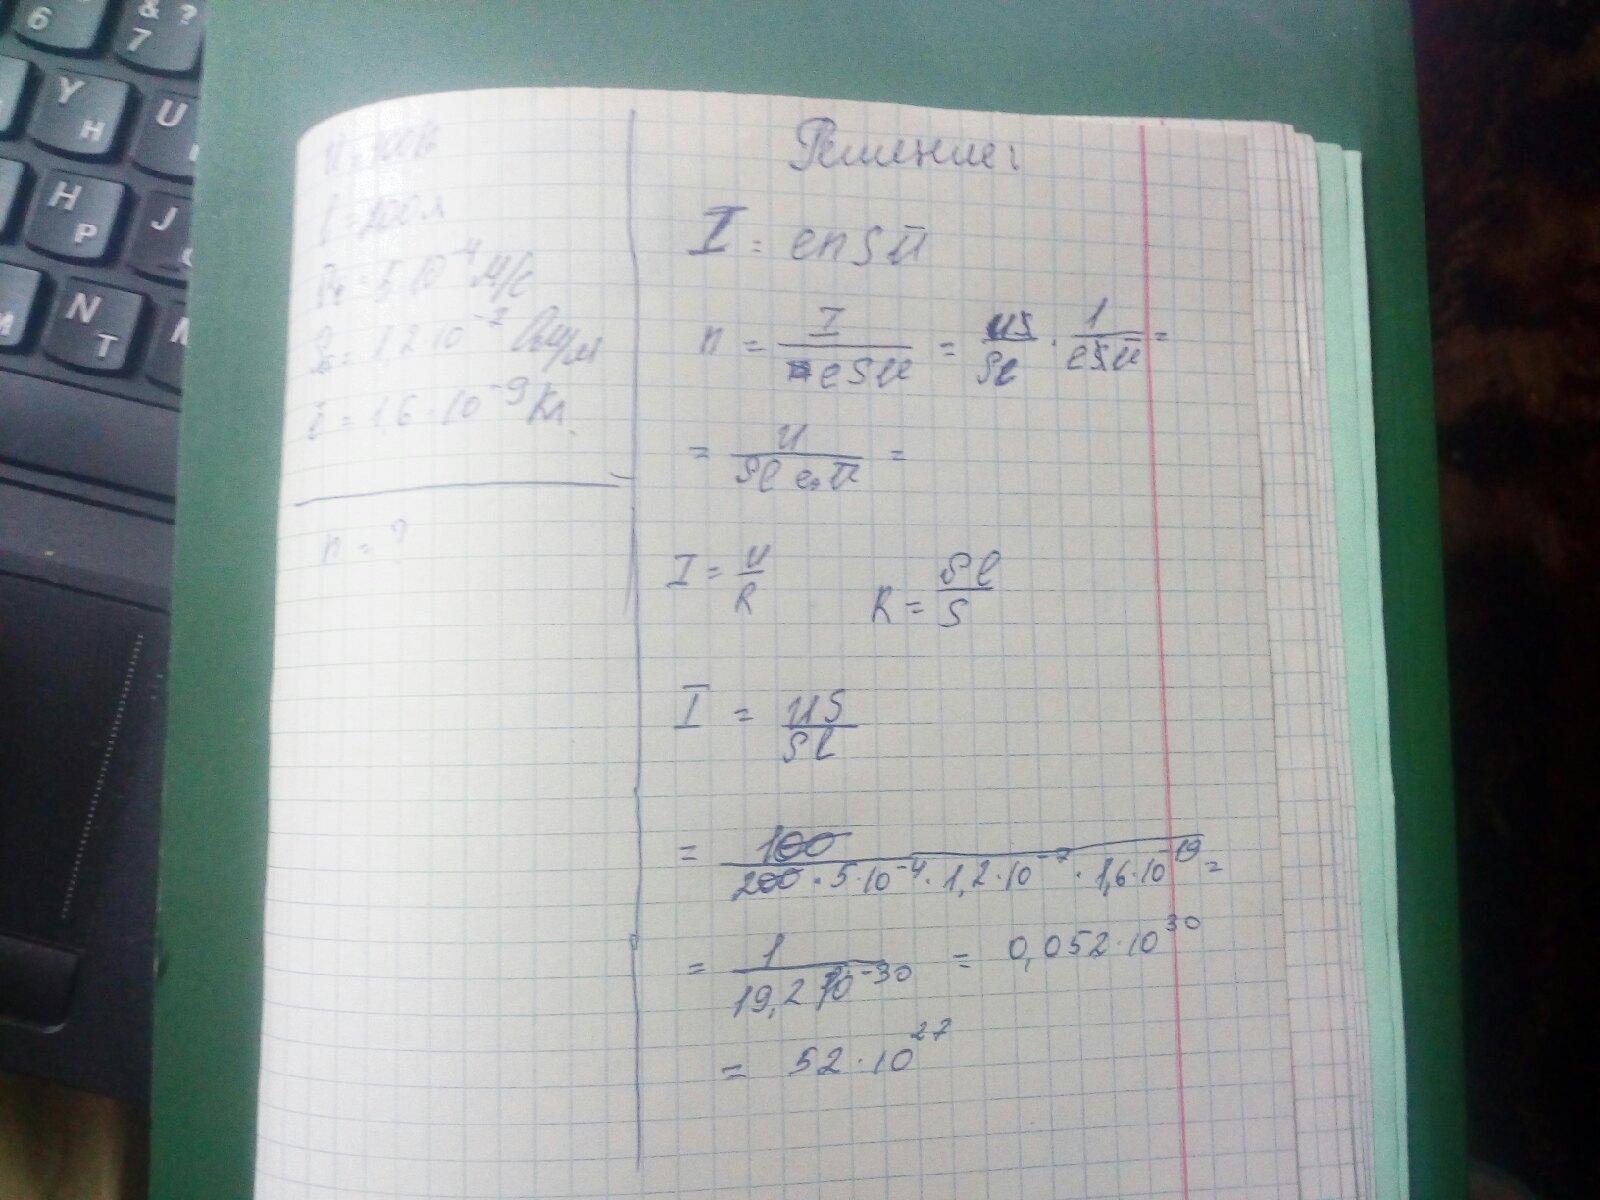 6
& 7 ?
Y Н
U
H Р
J
N Т
U = 100 В
l = 200 м
= 5 10⁻⁴ М/с
= 1,2 · 10⁻⁷ Ом/м
ē = 1,6 · 10⁻⁹ Кл.
n = ?
Решение:
I = enSū
n = I / eSū = US / ρl · 1 / eSū =
= U / ρl e, ū =
I = U / R R = ρl / S
I = US / ρl
= 100 / 200 · 5 · 10⁻⁴ · 1,2 · 10⁻⁷ · 1,6 · 10⁻¹⁹ =
= 1 / 19,2 10⁻³⁰ = 0,052 · 10³⁰
= 52 · 10²⁷